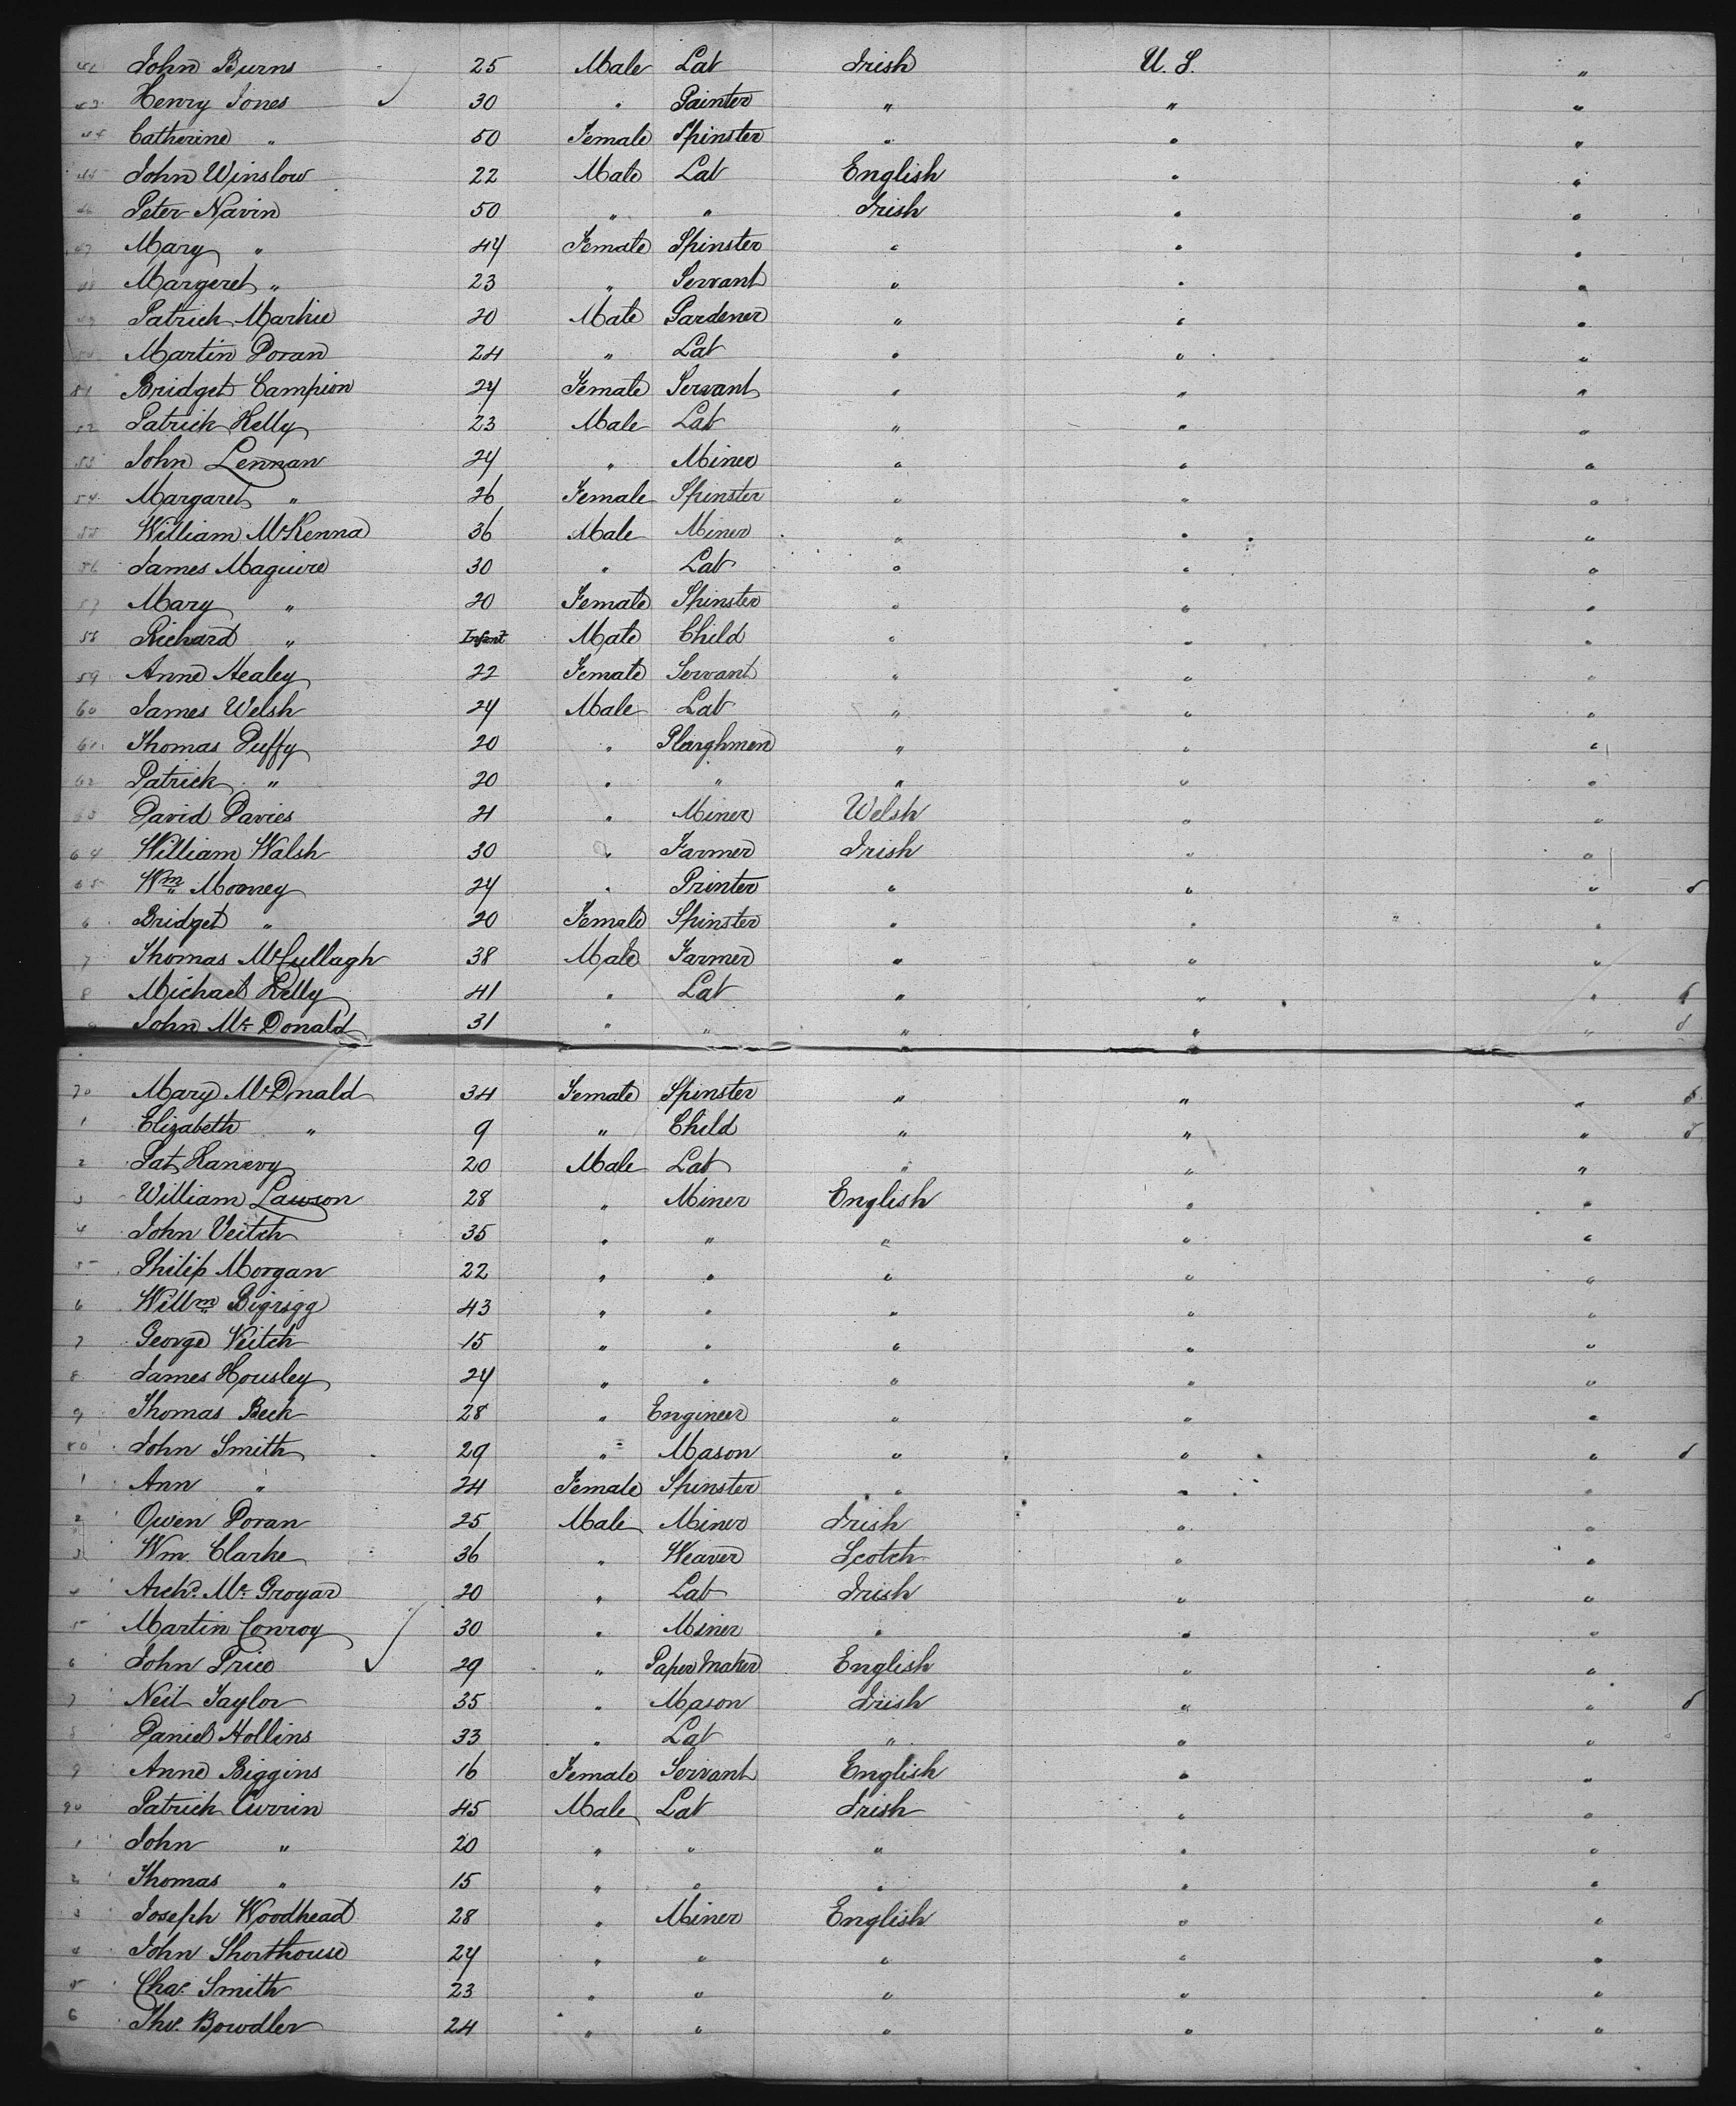 42 John Burns 25 Male Lab Irish U. S. "
43 Henry Jones 30 " Painter " " "
44 Catherine " 50 Female Spinster " " "
45 John Winslow 22 Male Lab English " "
46 Peter Navin 50 " " Irish " "
47 Mary " 44 Female Spinster " " "
48 Margeret " 23 " Servant " " "
49 Patrick Markie 20 Male Gardener " " "
50 Martin Doran 24 " Lab " " "
51 Bridget Campion 24 Female Servant " " "
52 Patrick Kelly 23 Male Lab " " "
53 John Lennan 24 " Miner " " "
54 Margaret " 26 Female Spinster " " "
55 William McKenna 36 Male Miner " " "
56 James Maguire 30 " Lab " " "
57 Mary " 20 Female Spinster " " "
58 Richard " Infant Male Child " " "
59 Anne Healey 22 Female Servant " " "
60 James Welsh 24 Male Lab " " "
61 Thomas Duffy 20 " Ploughman " " "
62 Patrick " 20 " " " " "
63 David Davies 21 " Miner Welsh " "
64 William Walsh 30 " Farmer Irish " "
65 Wm Mooney 24 " Printer " " "
6 Bridget " 20 Female Spinster " " "
7 Thomas McCullagh 38 Male Farmer " " "
8 Michael Kelly 41 " Lab " " "
9 John Mc Donald 31 " " " " "
70 Mary McDonald 34 Female Spinster " " "
1 Elizabeth " 9 " Child " " "
2 Pat Hanevy 20 Male Lab " " "
3 William Lawson 28 " Miner English " "
4 John Veitch 35 " " " " "
5 Philip Morgan 22 " " " " "
6 Willm Bigrigg 43 " " " " "
7 George Veitch 15 " " " " "
8 James Housley 24 " " " " "
9 Thomas Beck 28 " Engineer " " "
80 John Smith 29 " Mason " " "
1 Ann " 24 Female Spinster " " "
2 Owen Doran 25 Male Miner Irish " "
3 Wm. Clarke 36 " Weaver Scotch " "
4 Archd. Mc Grogar 20 " Lab Irish " "
5 Martin Conroy 30 " Miner " " "
6 John Price 29 " Paper Maker English " "
7 Neil Taylor 35 " Mason Irish " "
8 Daniel Hollins 33 " Lab " " "
9 Anne Biggins 16 Female Servant English " "
90 Patrick Currin 45 Male Lab Irish " "
1 John " 20 " " " " "
2 Thomas " 15 " " " " "
3 Joseph Woodhead 28 " Miner English " "
4 John Shorthouse 24 " " " " "
5 Chas. Smith 23 " " " " "
6 Thos. Bowdler 24 " " " " "